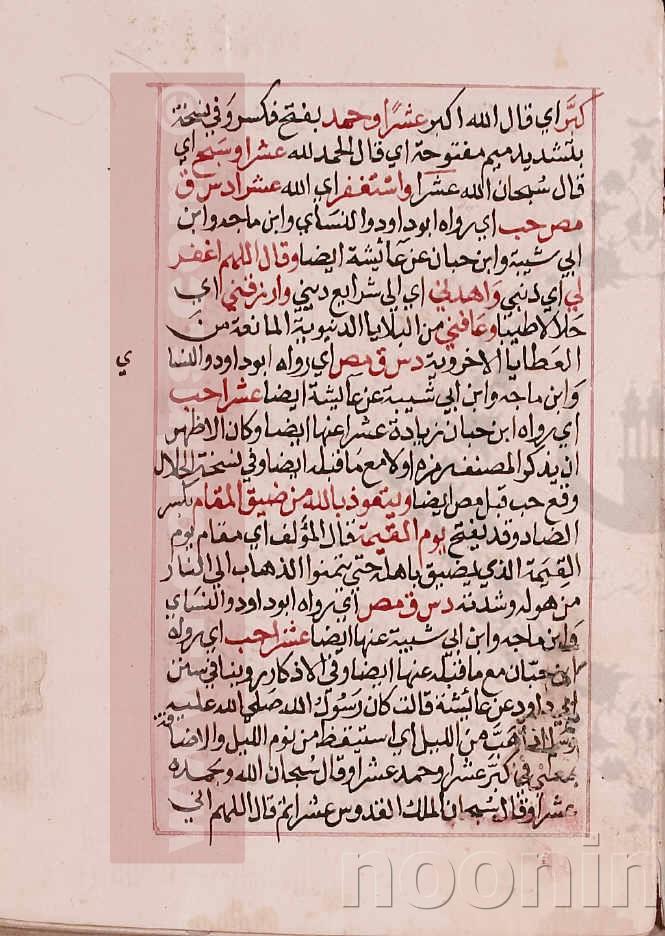 كبّر اي قال الله اكبر عشرًا وحمد بفتح فكسر وفي نسخة
بتشديد ميم مفتوحة اي قال الحمد لله عشرا وسبح اي
قال سبحان الله عشرا واستغفر اي الله عشرا د س ق
مص حب اي رواه ابو داود والنساي وابن ماجه وابن
ابي شيبة وابن حبان عن عائشة ايضا وقال اللهم اغفر
لي اي ذنبي واهدني اي الي شرايع ديني وارزقني اي
حلالا طيبا وعافني من البلايا الدنيوية المانعة من
العطايا الاخروية د س ق مص اي رواه ابو داود والنسا
ي
وابن ماجه وابن ابي شيبة عن عائشة ايضا عشرا حب
اي رواه ابن حبان بزيادة عشرا عنها ايضا وكان الاظهر
ان يذكر المصنف رمزه اولا مع ما قبله ايضا وفي نسخة الجلال
وقع حب قبل مص ايضا ويتعوذ بالله من ضيق المقام بكسر
الضاد وقد يفتح يوم القيمة قال المؤلف اي مقام يوم
القيمة الذي يضيق باهله حتي يتمنوا الذهاب الي النار
من هوله وشدته د س ق مص اي رواه ابو داود والنساي
وابن ماجه وابن ابي شيبة عنها ايضا عشرا حب اي رواه
ابن حبّان مع ما قبله عنها ايضا وفي الاذكار روينا في سنن
ابي داود عن عائشة قالت كان رسول الله صلي الله عليه
وسلم اذا هبّ من الليل اي استيقظ من نوم الليل والاضافة
بمعني في كبّر عشرا وحمد عشرا وقال سبحان الله وبحمده
عشرا وقال سبحان الملك القدوس عشرا ثم قال اللهم اني
noonin